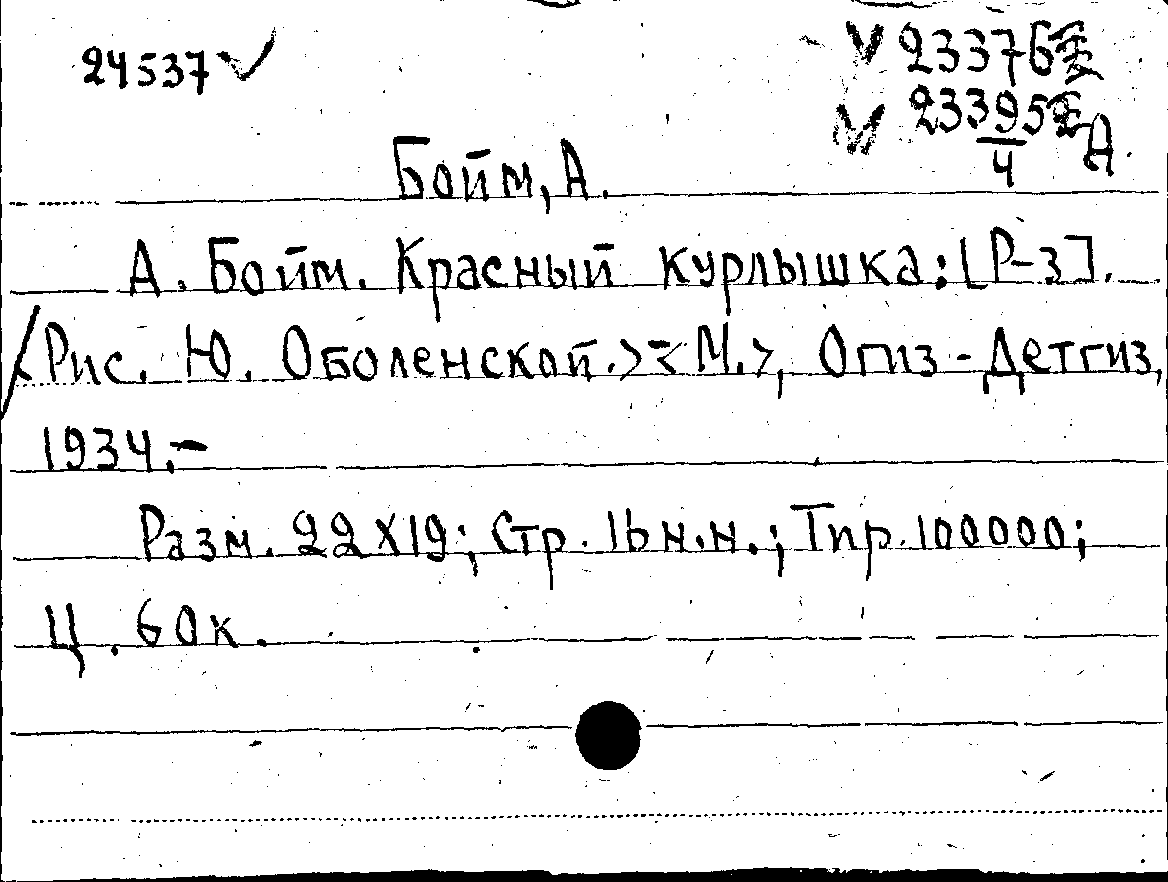 24537 V
V 23376
V 23395
4 А.
Бойм, А.
А. Бойм. Красный курлышка: [Р-з].
/Рис. Ю. Оболенской.> < М.>, Огиз-Детгиз,
1934.-
Разм. 22х19; Стр. 16 н.н.; Тир. 100000;
Ц. 60к.